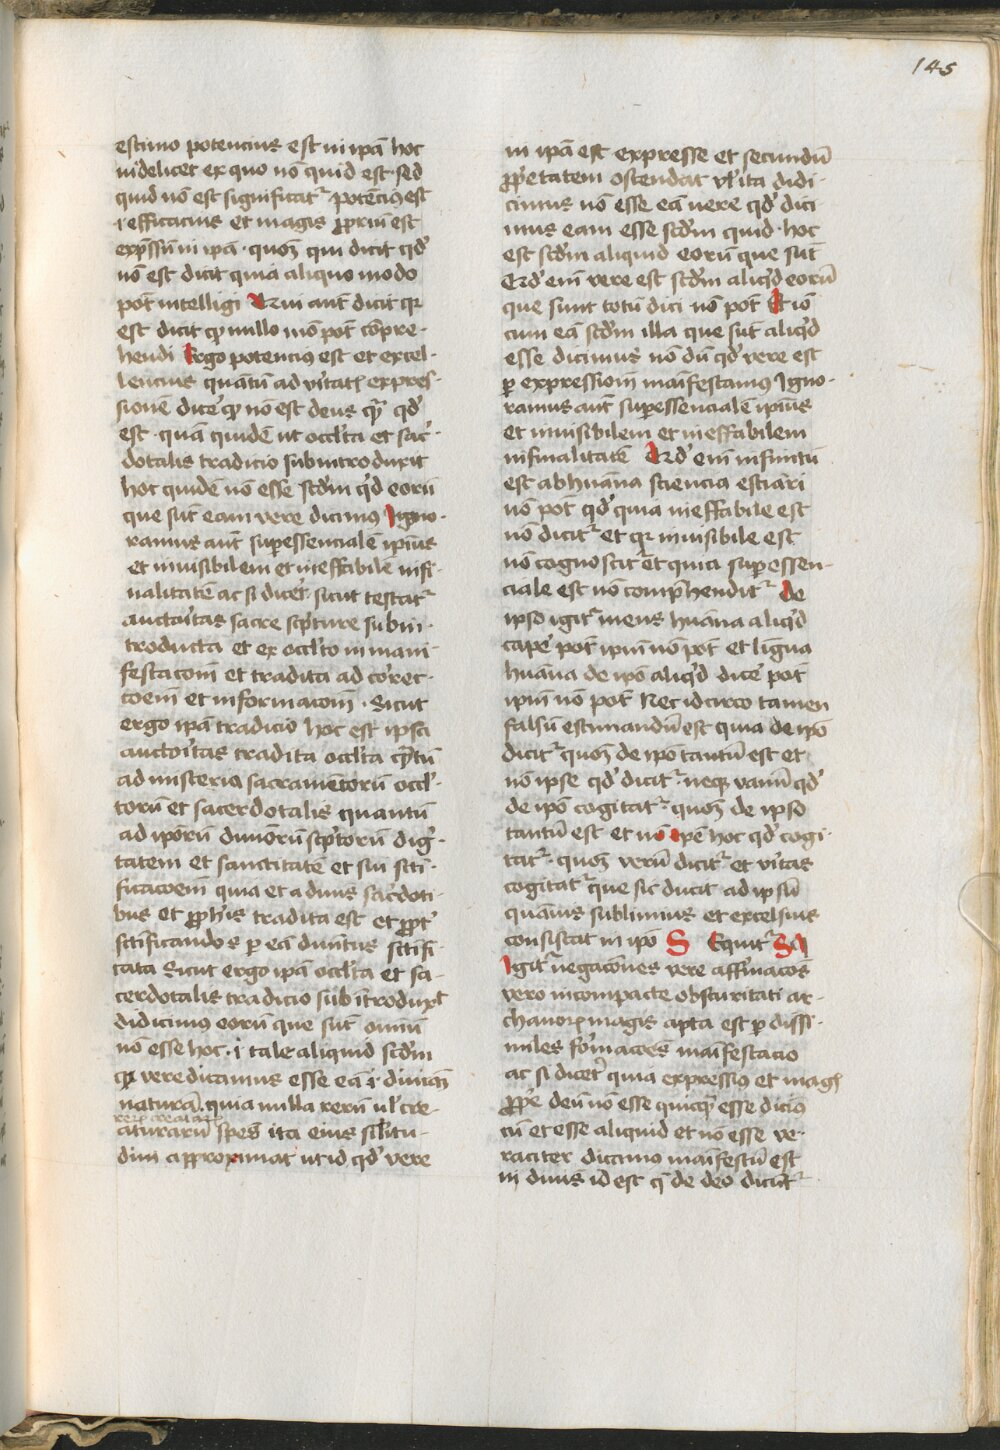 145
estimo potencius est in ipā hoc
videlicet ex quo nō quid est sed
quid nō est significatr potēcius est
i efficacius et magis ꝓpriū est
expssū in ipā · quoꝫ qui dicit qd
nō est dicit quia aliquo modo
pōt intelligi Qui aūt dicit qr
est dicit ꝙ nullo mō pōt cōpre-
hendi Ergo potencius est et excel-
lencius quātū ad vitatē expres-
sionē dicē ꝙ nō est deus qͣ qd
est · quā quidē ut occlta et sac-
dotalis tradicio subintroduxit
hoc quidē nō esse scdm qd eorū
que sūt eam vere dicimus Igno-
ramus aūt supessencialē ipius
et invisibilem et ineffabile infi-
nalitatē ac si dicer sicut testatr
auctoitas sacre scpture subin-
troducta et ex occlto in mani-
festacom et tradita ad corec-
coem et informacom · Sicut
ergo ipā tradicio hoc est ipsa
auctoitas tradita occlta cptū
ad misteria sacramētorū occl-
torū et sacerdotalis quantū
ad iporū divorū scptorū dig-
tatem et sanctitatē et sui scti-
ficacoem quia et a divis sacdoti-
bus et ꝓphis tradita est et ꝓpt
sctificandos p eā divitus sctifi-
cata Sicut ergo ipā occlta et sa-
cerdotalis tradicio subitroduxt
didicimus eorū que sūt omiū
nō esse hoc · i tale aliquid scdm
ꝙ vere dicamus esse eā i divinā
naturā · quia nulla rerū ul cre-
aturarū spēs ita eius silitu-
dini approximat ut id qd vere
in ipā est expresse et secundū
ꝓpetatem ostendat vl ita didi-
cimus nō esse eā vere qd dici
mus eam esse scdm quid · hoc
est scdm aliquid eorū que sūt
Qd eni vere est scdm aliqd eorū
que sunt totū dici nō pōt Et iō
cum eā scdm illa que sūt aliqd
esse dicimus nō dū qd vere est
p expressiom māifestamus Igno-
ramus aūt supessencialē ipius
et invisibilem et ineffabilem
infinalitatē Qd eni infinitū
est ab huāna sciencia estiāri
nō pōt qd quia ineffabile est
nō dicitr et qr invisibile est
nō cognoscitr et quia supessen-
ciale est nō comphenditr De
ipso igitr mens huāna aliqd
cape pōt ipm nō pōt et ligua
huāna de ipō aliqd dice pōt
ipm nō pōt Nec idcirco tamen
falsū estimandū est quia de ipō
dicitr quoꝫ de ipō tantū est et
nō ipse qd dicitr neqꝫ vanū qd
de ipō cogitatr quoꝫ de ipso
tantū est et nō ipē hoc qd cogi-
tatr · quoꝫ verū dicitr et vitas
cogitatr que sic ducit ad ipsū
quāvis sublimius et excelsius
consistat in ipō S Equitr Sa
Igitr negacōnes vere affirmacōs
vero incompacte obscuritati ar-
chanoꝝ magis apta est p dissi-
miles formacoēs māifestacio
ac si dicert quia expressiꝰ et magis
ꝓpe deū nō esse quicqꝫ esse dicimꝰ
cū et esse aliquid et nō esse ve-
raciter dicimus māifestū est
in divis id est q de deo dicūtr